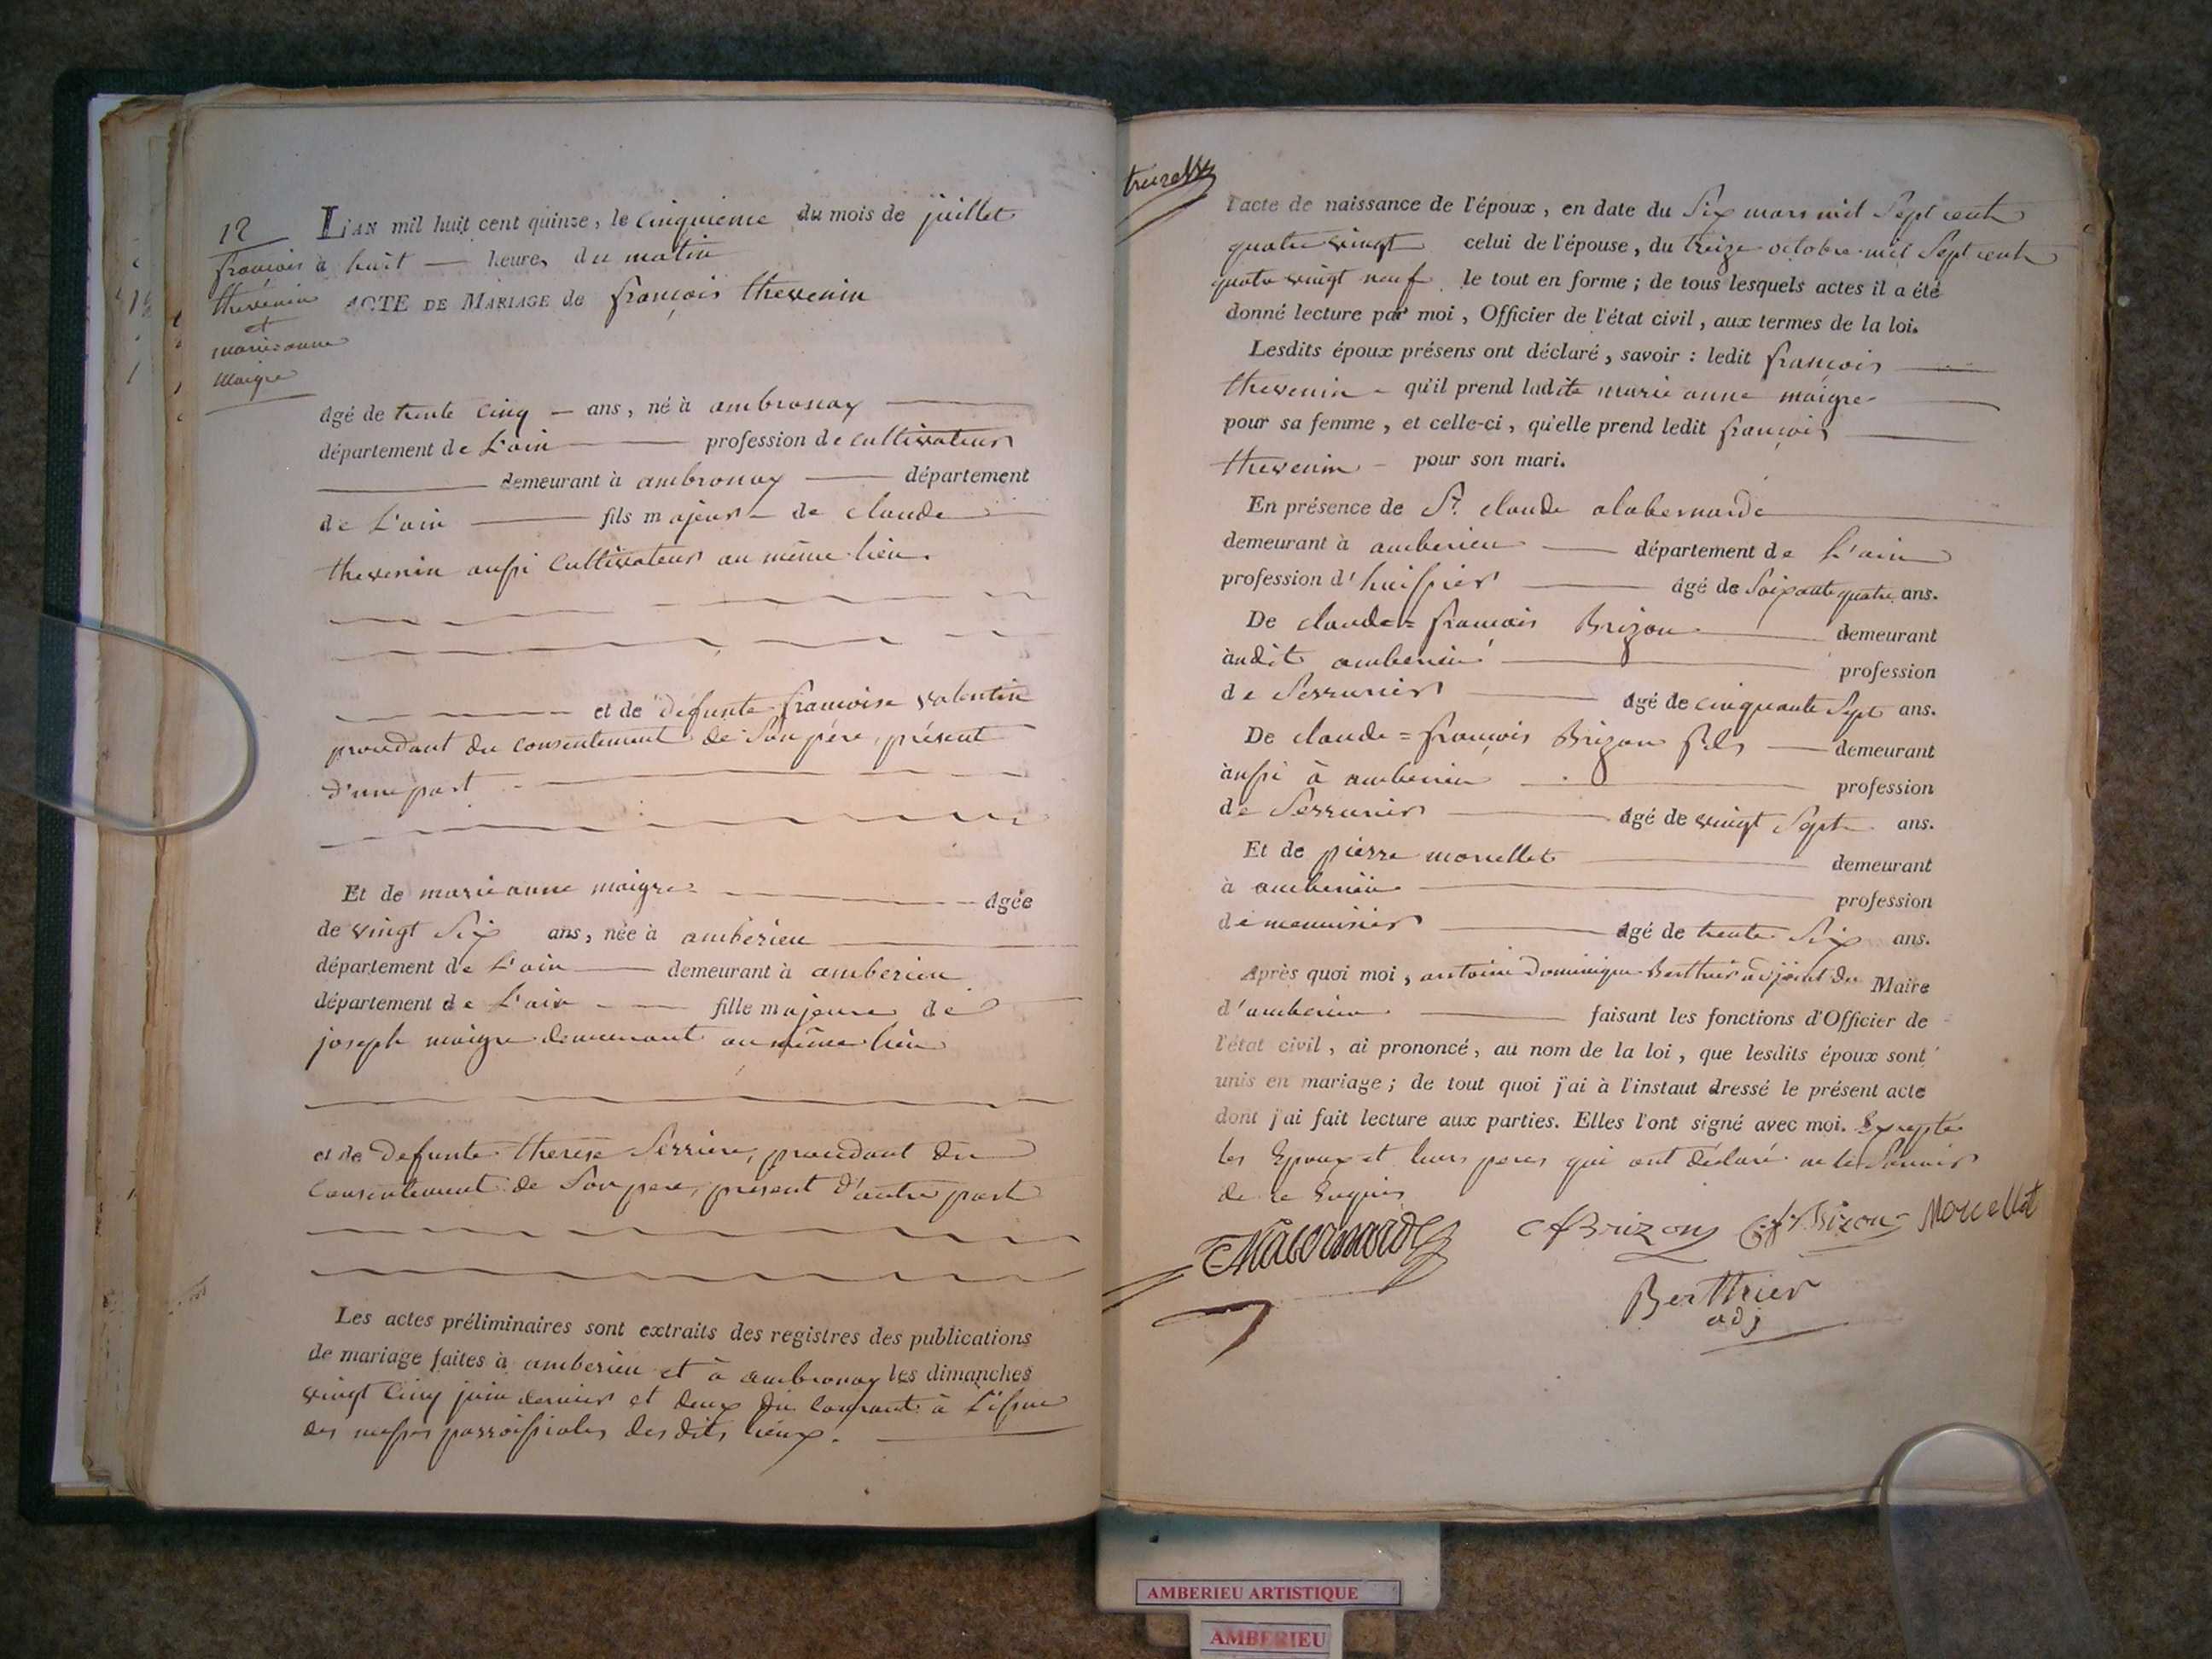 12
françois
thevenin
et
marie anne
maigre
L'AN mil huit cent quinze, le cinquieme du mois de juillet
à huit heures du matin
ACTE DE MARIAGE de françois thevenin
âgé de trente cinq ans, né à ambronay
département de L'ain profession de cultivateur
demeurant à ambronay département
de L'ain fils majeur de claude
thevenin aussi Cultivateur au même lieu.
et de défunte françoise valentin
procédant du consentement de son père, présent
d'une part
Et de marie anne maigre âgée
de vingt six ans, née à amberieu
département de L'ain demeurant à amberieu
département de L'ain fille majeure de
joseph maigre demeurant au même lieu
et de defunte therese Serriere, procedant du
Consentement de Son pere, présent d'autre part
Les actes préliminaires sont extraits des registres des publications
de mariage faites à amberieu et à ambronay les dimanches
vingt cinq juin dernier et deux du courant à L'issue
des messes parroissiales des dits lieux.
l'acte de naissance de l'époux, en date du Six mars mil Sept cent
quatre vingt celui de l'épouse, du treize octobre mil Sept cent
quatre vingt neuf le tout en forme; de tous lesquels actes il a été
donné lecture par moi, Officier de l'état civil, aux termes de la loi.
Lesdits époux présens ont déclaré, savoir : ledit françois
thevenin qu'il prend ladite marie anne maigre
pour sa femme, et celle-ci, qu'elle prend ledit françois
thevenin pour son mari.
En présence de Sr. claude alabernarde
demeurant à amberieu département de L'ain
profession d'huissier âgé de Soixante quatre ans.
De claude=françois Brizon demeurant
audit amberieu profession
de Serrurier âgé de cinquante Sept ans.
De claude=françois Brizon fils demeurant
aussi à amberieu profession
de Serrurier âgé de vingt Sept ans.
Et de pierre morellet demeurant
à amberieu profession
de menuisier âgé de trente Six ans.
Après quoi moi, antoine Dominique Berthier adjoint du Maire
d'amberieu faisant les fonctions d'Officier de
l'état civil, ai prononcé, au nom de la loi, que lesdits époux sont
unis en mariage; de tout quoi j'ai à l'instant dressé le présent acte
dont j'ai fait lecture aux parties. Elles l'ont signé avec moi. Excepté
les Epoux et leurs peres qui ont déclaré ne le Savoir
de ce Enquis
CfBrizon Morellet
Berthier
adj
AMBERIEU ARTISTIQUE
AMBERIEU